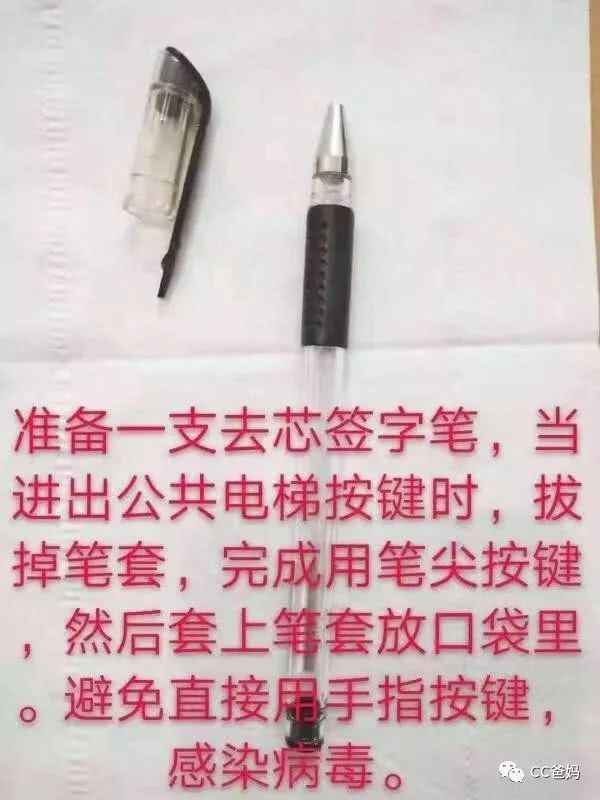 准备一支去芯签字笔，当
进出公共电梯按键时，拔
掉笔套，完成用笔尖按键
，然后套上笔套放口袋里
。避免直接用手指按键，
感染病毒。
CC爸妈